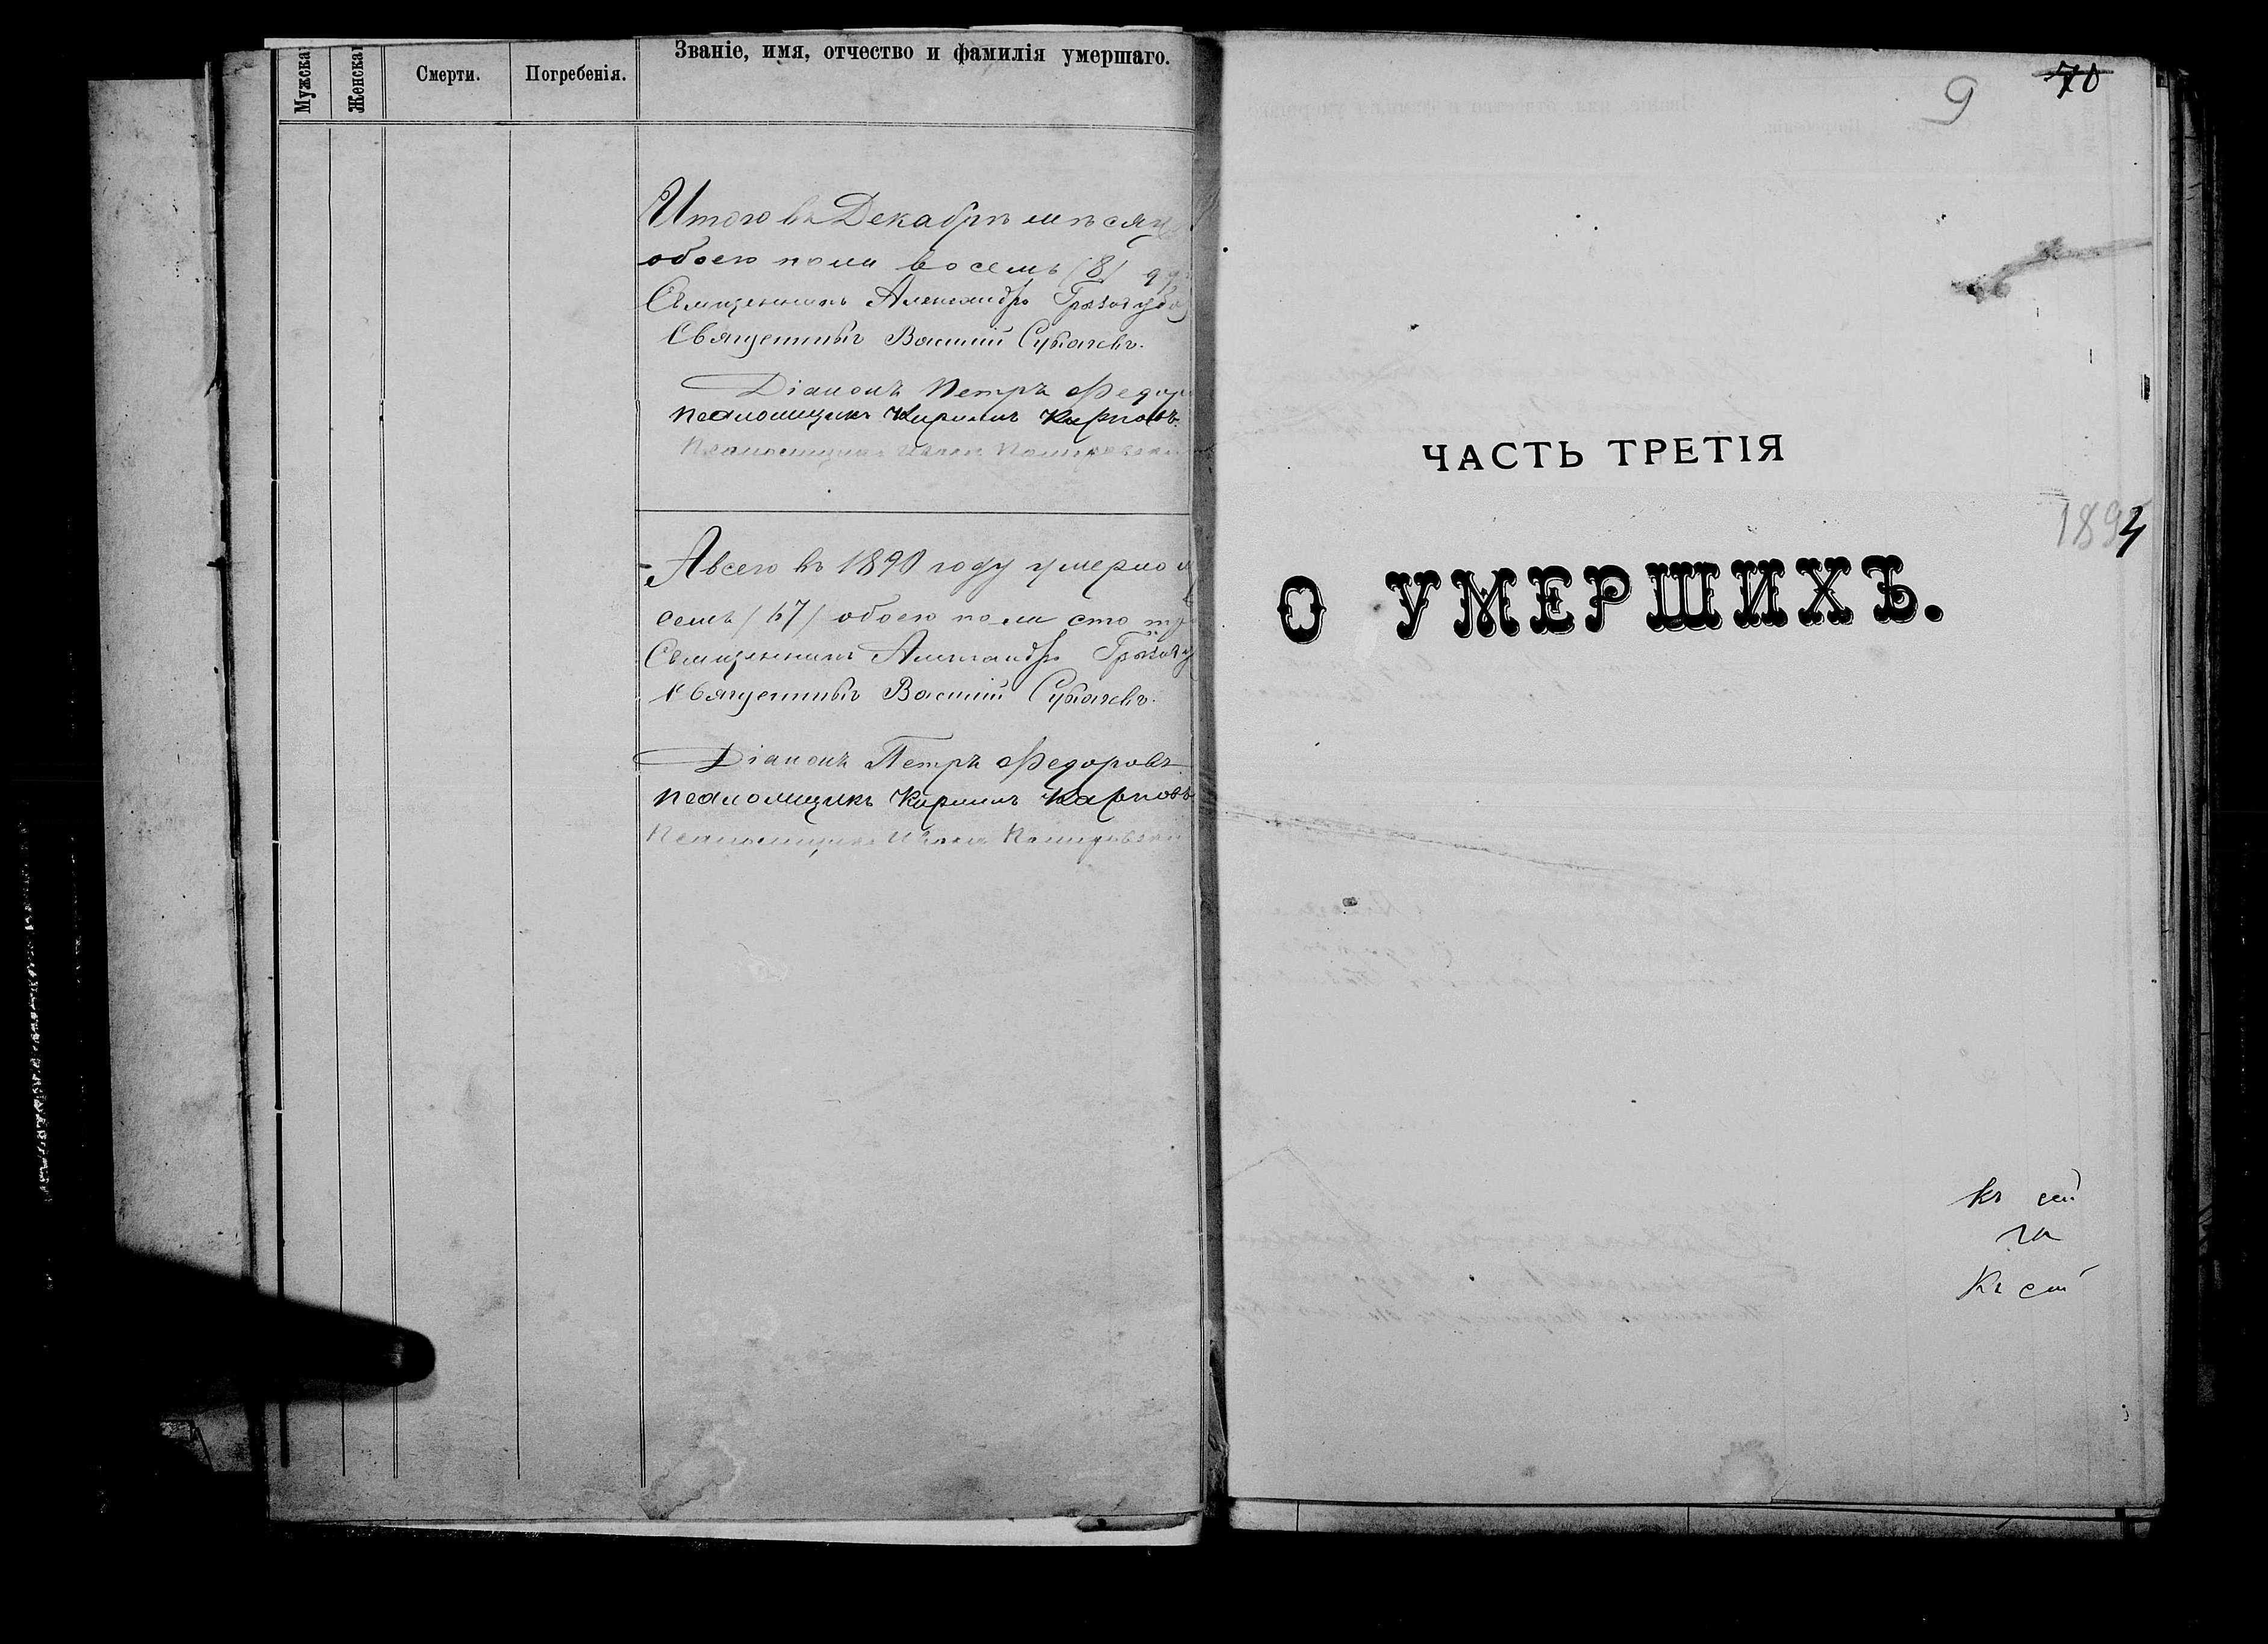 Мужска
Женска
Смерти.
Погребенія.
Званіе, имя, отчество и фамилія умершаго.
Итого въ Декабрѣ мѣсяц
обоего пола восемь (8)
Священникъ Александръ
Священникъ Василій
Діаконъ Петръ Федор
Псаломщикъ Кириллъ Карповъ.
Псаломщикъ
А всего въ 1890 году умерло
семь (67) обоего пола сто
Священникъ Александръ
Священникъ Василій
Діаконъ Петръ Федоровъ
Псаломщикъ Кириллъ Карповъ
Псаломщикъ
9 70
ЧАСТЬ ТРЕТІЯ
1894
О УМЕРШИХЪ.
Къ сей
га
Къ сей